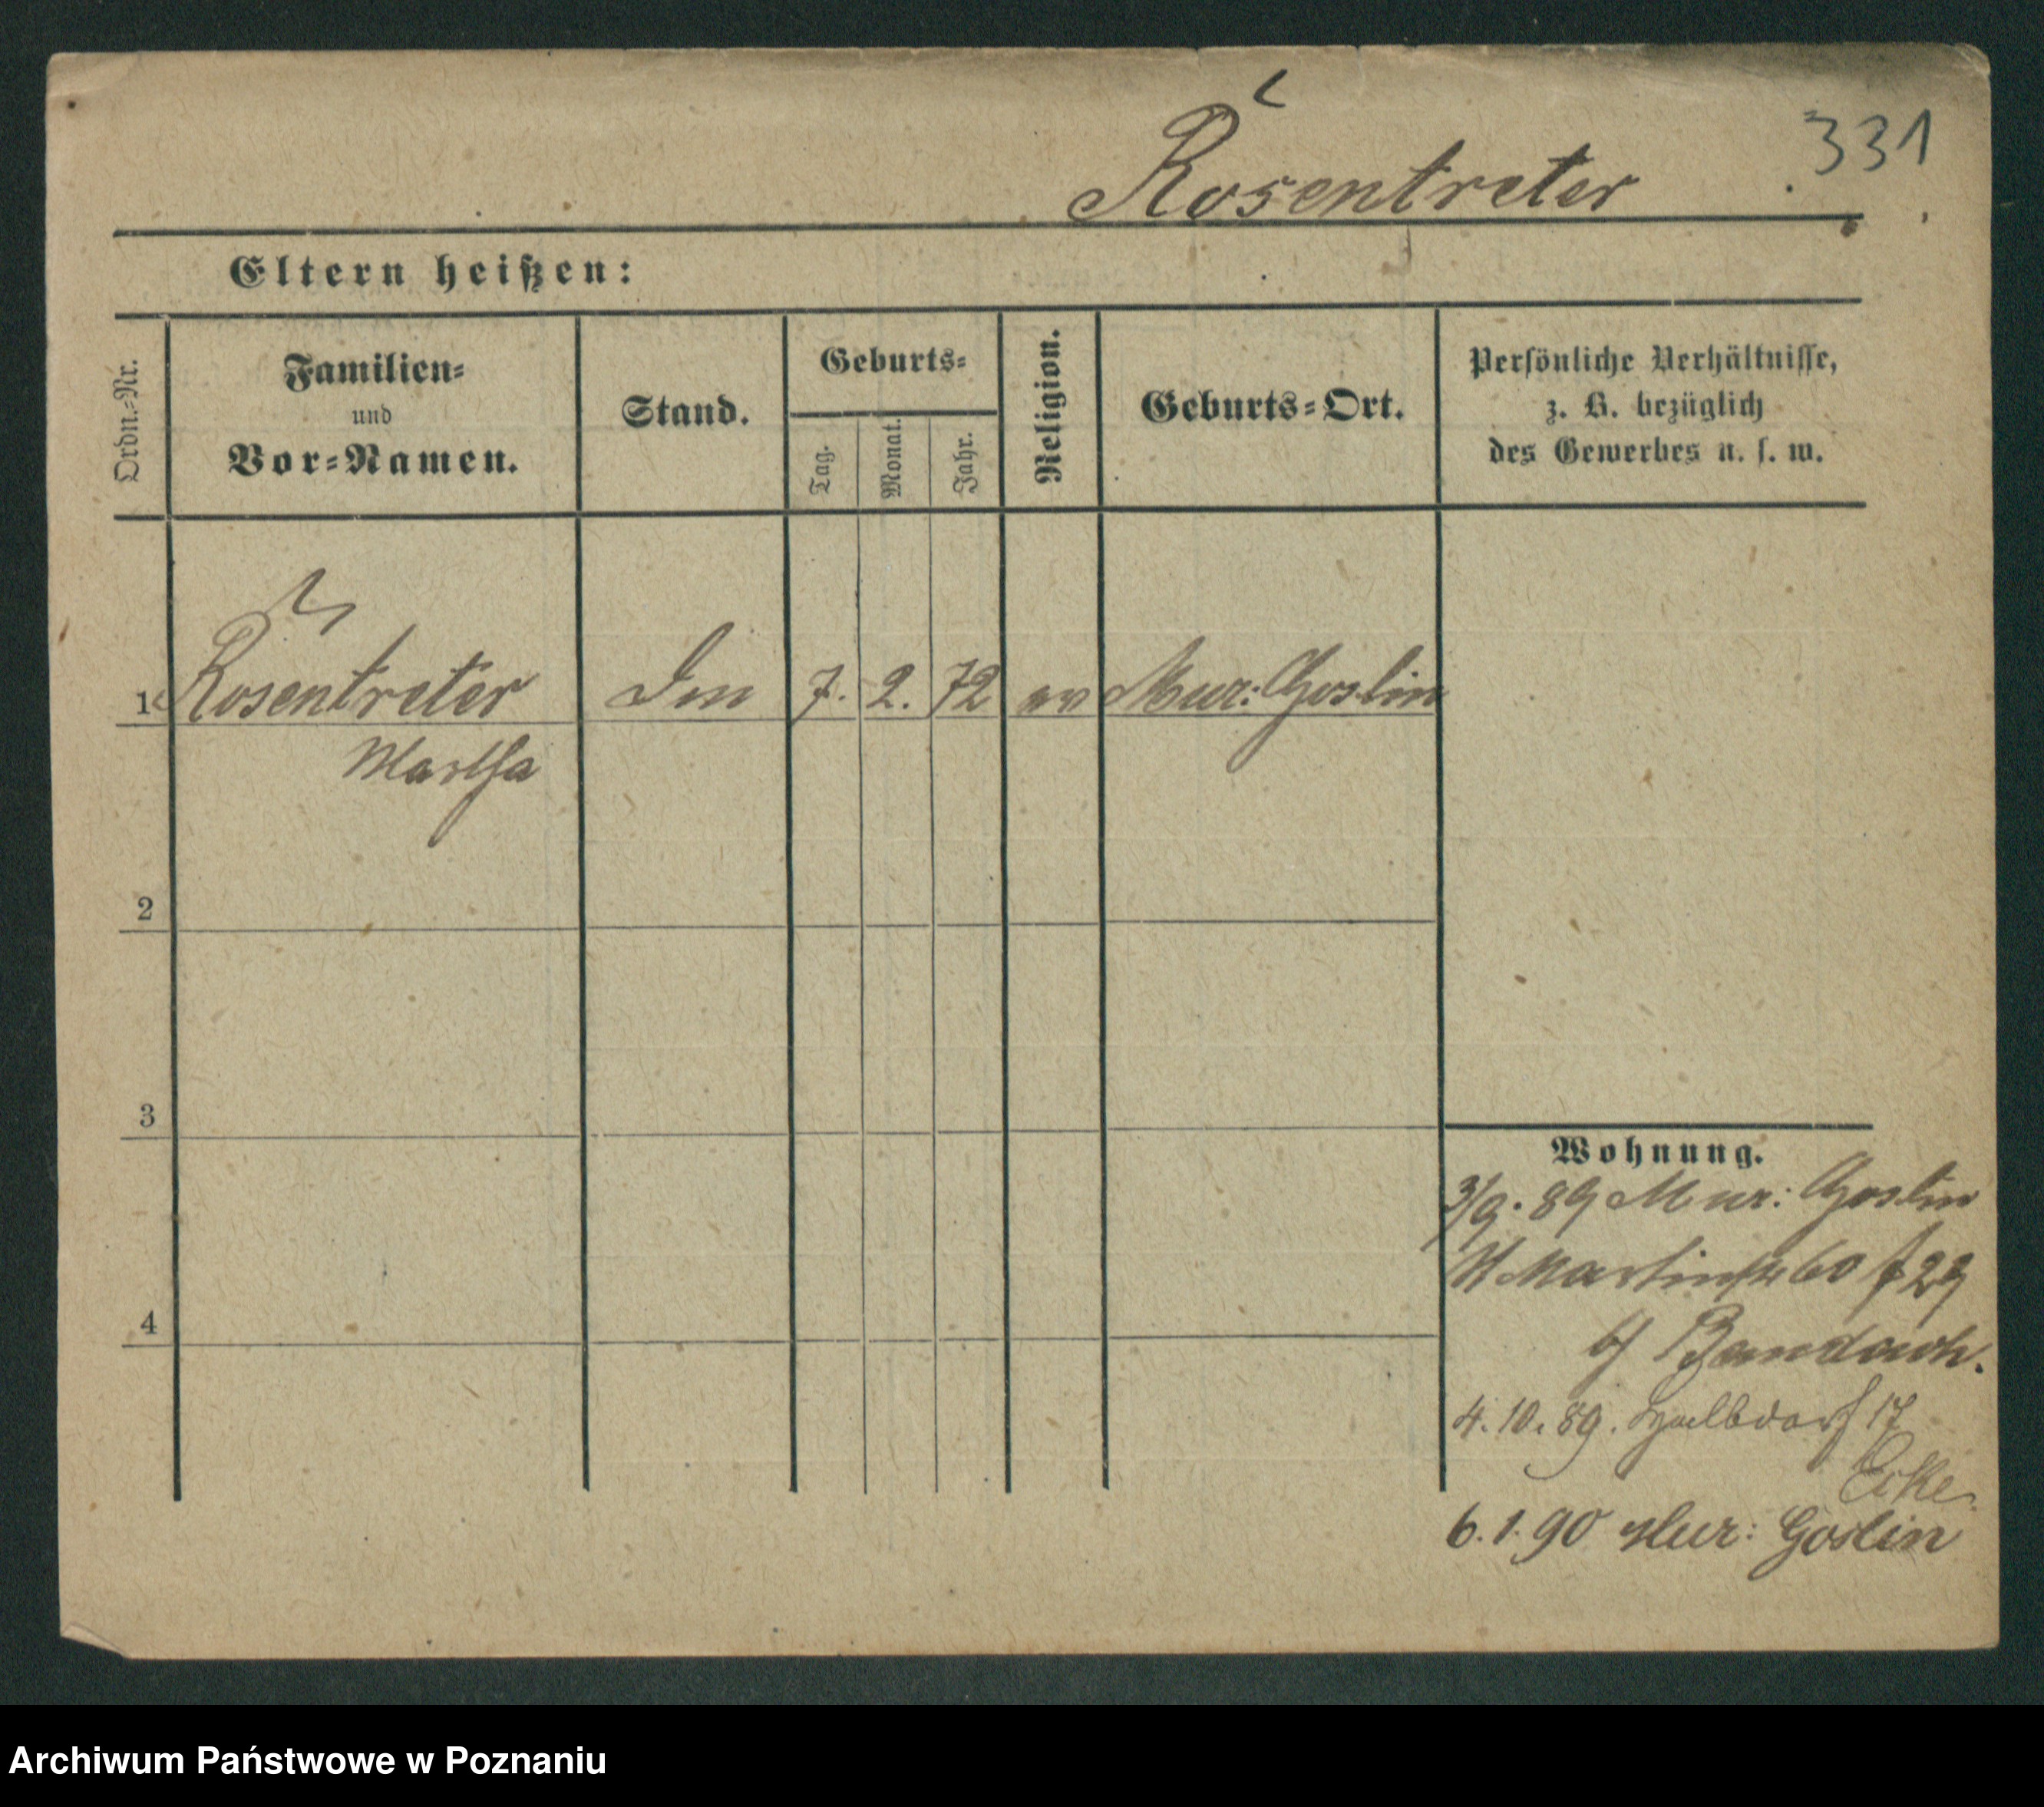 331
Rosentreter
Eltern heißen:
Ordn.-Nr.
Familien-
und
Vor-Namen.
Stand.
Geburts-
Tag.
Monat.
Jahr.
Religion.
Geburts-Ort.
Persönliche Verhältnisse,
z. B. bezüglich
des Gewerbes u. s. w.
1 Rosentreter 7. 2. 72 ev Mur: Goslin
Martha
2
3
4
Wohnung.
3/9. 89 Mur: Goslin
Martinstr 60
b/
4. 10. 89. Halbdorf 17
Ecke.
6. 1. 90 Mur: Goslin
Archiwum Państwowe w Poznaniu